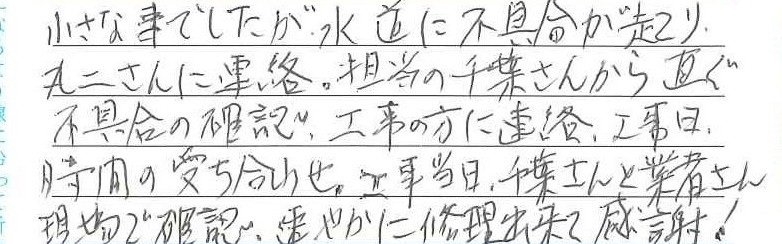 小さな事でしたが、水道に不具合が起こり、
丸二さんに連絡。担当の千葉さんから直ぐ
不具合の確認、工事の方に連絡、工事日、
時間の受ち合わせ。工事当日、千葉さんと業者さん
現場で確認、速やかに修理出来て感謝!